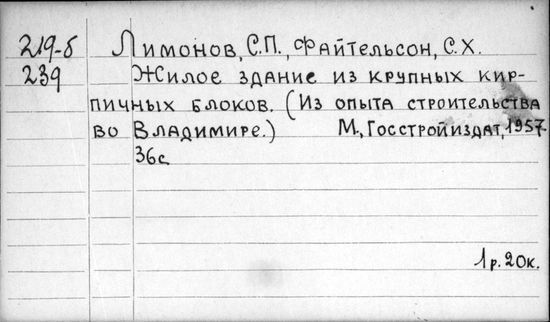 219-б Лимонов, С.П., Файтельсон, С.Х.
239 Жилое здание из крупных кир-
пичных блоков. (Из опыта строительства
во Владимире.) М., Госстройиздат, 1957.
36с.
1р. 20к.